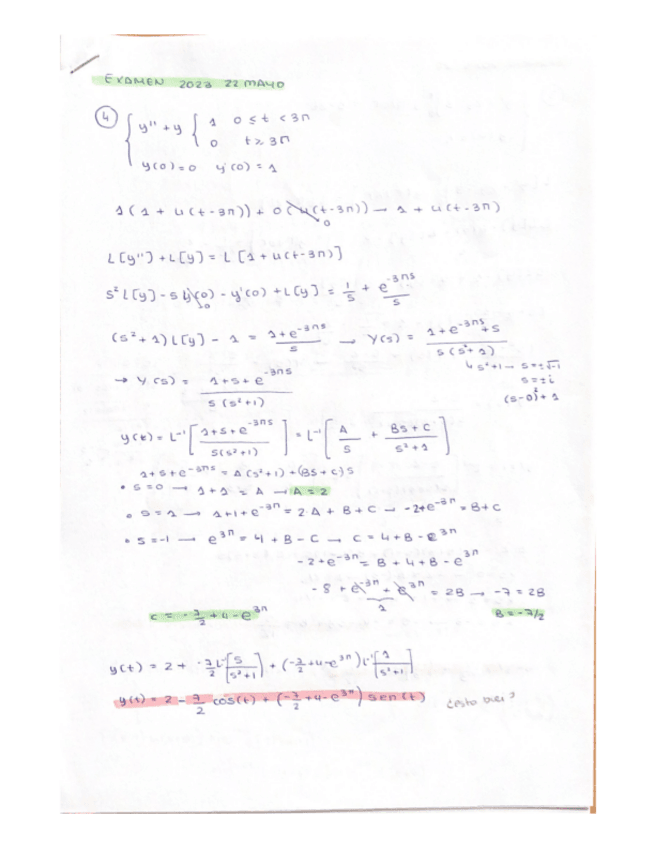 EXAMEN 2023 22 MAYO
④ { y'' + y { 1 0 ≤ t < 3π
0 t ≥ 3π
y(0) = 0 y'(0) = 1
1(1 + u(t-3π)) + 0(u(t-3π)) → 1 + u(t-3π)
0
L[y''] + L[y] = L[1 + u(t-3π)]
s² L[y] - s y(0) - y'(0) + L[y] = 1/s + e^(-3πs)/s
0
(s²+1) L[y] - 1 = (1+e^(-3πs))/s → Y(s) = (1+e^(-3πs)+s)/(s(s²+1))
↳ s²+1 → s = ±√-1
s = ±i
(s-0)²+1
→ Y(s) = (1+s+e^(-3πs))/(s(s²+1))
y(t) = L⁻¹[(1+s+e^(-3πs))/(s(s²+1))] = L⁻¹[A/s + (Bs+C)/(s²+1)]
1+s+e^(-3πs) = A(s²+1) + (Bs+C)s
• s=0 → 1+1 = A → A = 2
• s=1 → 1+1+e^(-3π) = 2·A + B + C → -2+e^(-3π) = B+C
• s=-1 → e^(3π) = 4 + B - C → C = 4+B-e^(3π)
-2+e^(-3π) = B + 4 + B - e^(3π)
e^(-3π) + e^(3π) = 2B → -7 = 2B
1
C = -7/2 + 4 - e^(3π) B = -7/2
y(t) = 2 + -7/2 L⁻¹[s/(s²+1)] + (-7/2+4-e^(3π)) L⁻¹[1/(s²+1)]
y(t) = 2 - 7/2 cos(t) + (-7/2+4-e^(3π)) sen(t) ¿esto